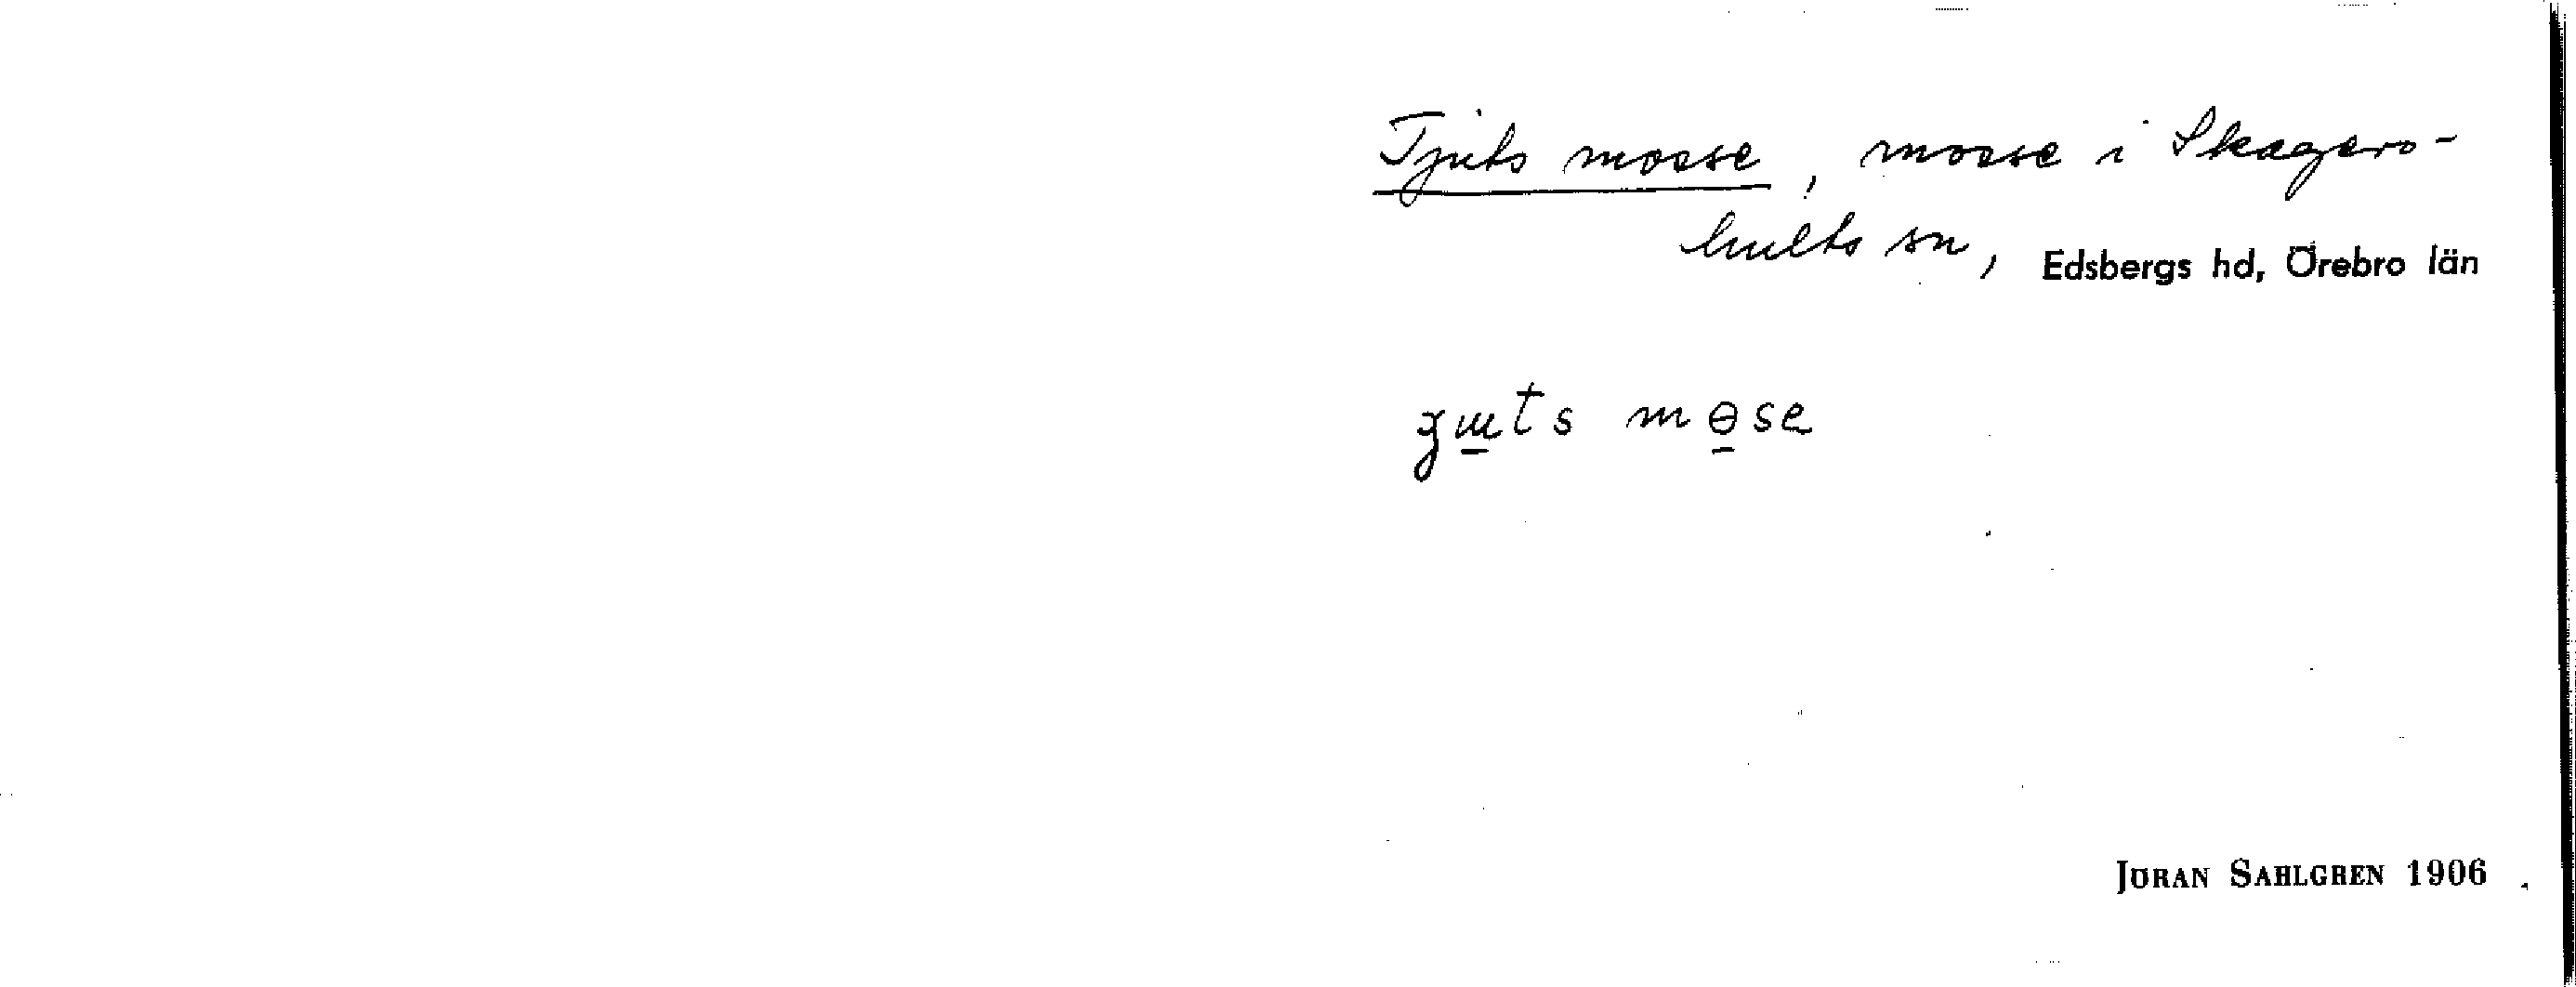 Tjuts mosse, mosse i Skagers-
hults sn, Edsbergs hd, Örebro län
mɵse
JÖRAN SAHLGREN 1906